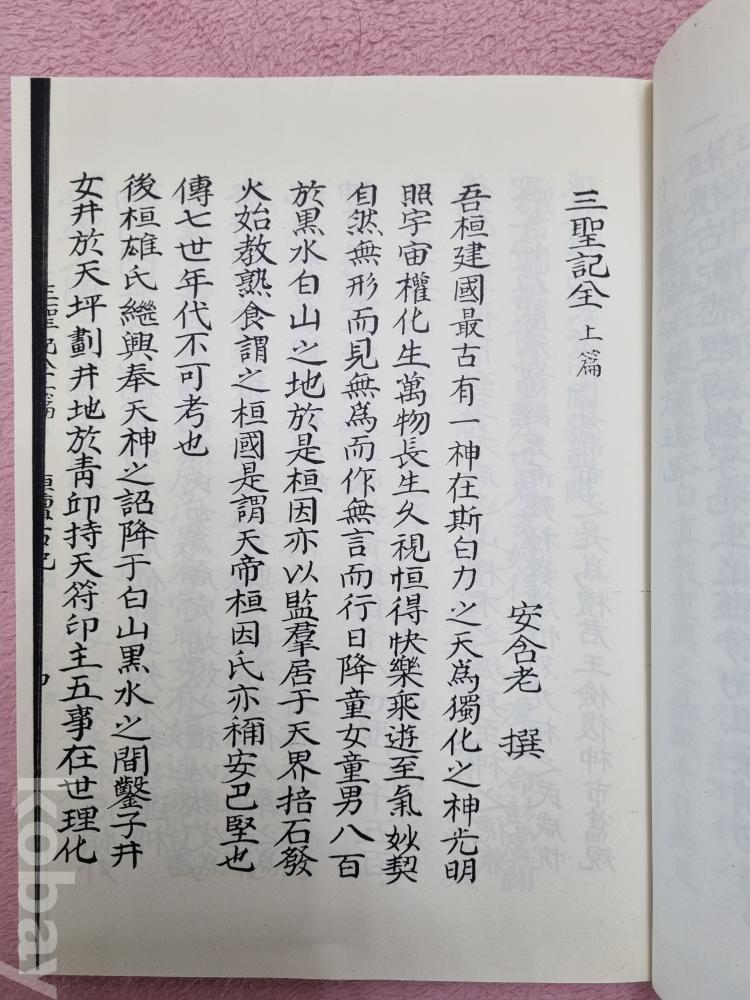 三聖記全 上篇
安含老 撰
吾桓建國最古有一神在斯白力之天爲獨化之神光明
照宇宙權化生萬物長生久視恒得快樂乘遊至氣妙契
自然無形而見無爲而作無言而行日降童女童男八百
於黑水白山之地於是桓因亦以監羣居于天界掊石發
火始教熟食謂之桓國是謂天帝桓因氏亦稱安巴堅也
傳七世年代不可考也
後桓雄氏繼興奉天神之詔降于白山黑水之間鑿子井
女井於天坪劃井地於靑邱持天符印主五事在世理化
kobay